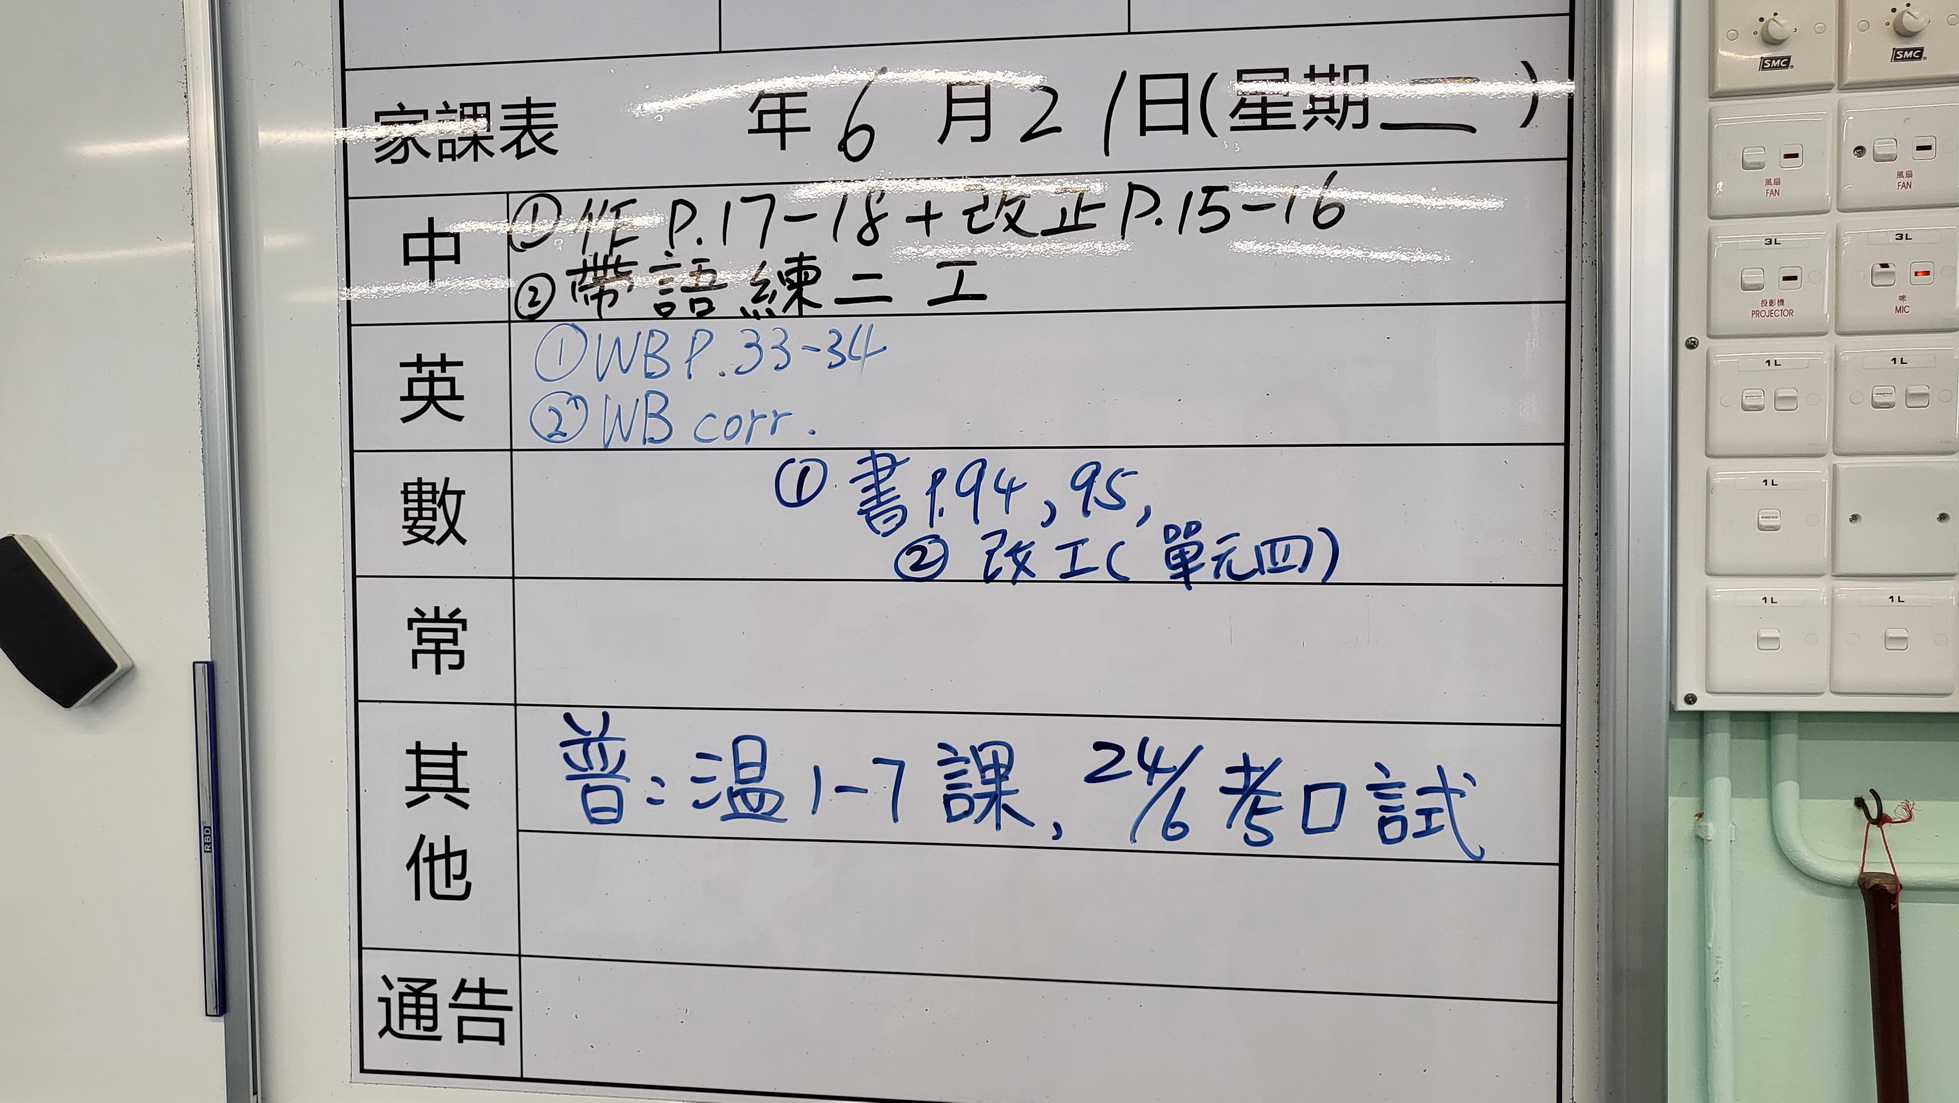 家課表 年6月21日(星期二)
中
①作P.17-18+改正P.15-16
②帶語練二 工
英
①WB P.33-34
② WB corr.
數
①書P.94,95,
②改工(單元四)
常
其他
普:温1-7課,24/6考口試
通告
SMC
SMC
風扇
FAN
風扇
FAN
3L
3L
投影機
PROJECTOR
咪
MIC
1L
1L
1L
1L
1L
RBD